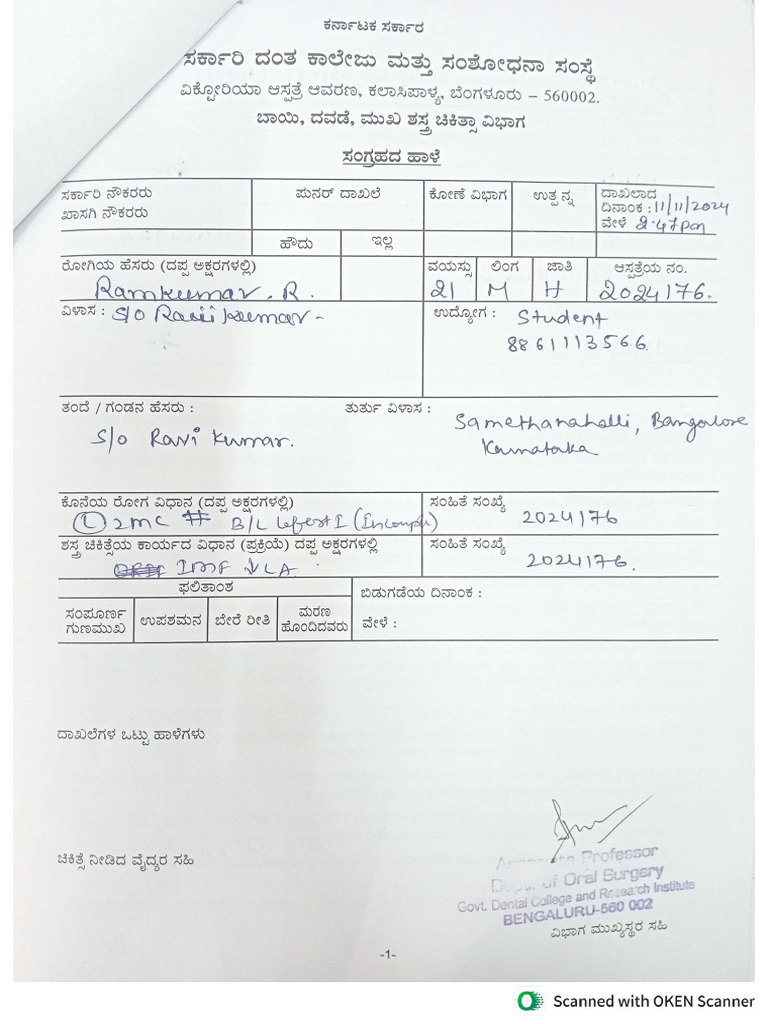 ಕರ್ನಾಟಕ ಸರ್ಕಾರ
ಸರ್ಕಾರಿ ದಂತ ಕಾಲೇಜು ಮತ್ತು ಸಂಶೋಧನಾ ಸಂಸ್ಥೆ
ವಿಕ್ಟೋರಿಯಾ ಆಸ್ಪತ್ರೆ ಆವರಣ, ಕಲಾಸಿಪಾಳ್ಯ, ಬೆಂಗಳೂರು – 560002.
ಬಾಯಿ, ದವಡೆ, ಮುಖ ಶಸ್ತ್ರ ಚಿಕಿತ್ಸಾ ವಿಭಾಗ
ಸಂಗ್ರಹದ ಹಾಳೆ
ಸರ್ಕಾರಿ ನೌಕರರು ಪುನರ್ ದಾಖಲೆ ಕೋಣೆ ವಿಭಾಗ ಉತ್ಪನ್ನ ದಾಖಲಾದ
ಖಾಸಗಿ ನೌಕರರು ದಿನಾಂಕ : 11/11/2024
ವೇಳೆ 2.47pm
ಹೌದು ಇಲ್ಲ
ರೋಗಿಯ ಹೆಸರು (ದಪ್ಪ ಅಕ್ಷರಗಳಲ್ಲಿ) ವಯಸ್ಸು ಲಿಂಗ ಜಾತಿ ಆಸ್ಪತ್ರೆಯ ನಂ.
Ramkumar. R. 21 M H 2024176.
ವಿಳಾಸ : S/o Ravi kumar - ಉದ್ಯೋಗ : Student
8861113566.
ತಂದೆ / ಗಂಡನ ಹೆಸರು : ತುರ್ತು ವಿಳಾಸ :
S/o Ravi Kumar. Samethanahalli, Bangalore
Karnataka
ಕೊನೆಯ ರೋಗ ವಿಧಾನ (ದಪ್ಪ ಅಕ್ಷರಗಳಲ್ಲಿ) ಸಂಹಿತೆ ಸಂಖ್ಯೆ
(L) ZMC # B/L Lefort I 2024176
ಶಸ್ತ್ರ ಚಿಕಿತ್ಸೆಯ ಕಾರ್ಯದ ವಿಧಾನ (ಪ್ರಕ್ರಿಯೆ) ದಪ್ಪ ಅಕ್ಷರಗಳಲ್ಲಿ ಸಂಹಿತೆ ಸಂಖ್ಯೆ
IMF LA 2024176.
ಫಲಿತಾಂಶ ಬಿಡುಗಡೆಯ ದಿನಾಂಕ :
ಸಂಪೂರ್ಣ ಗುಣಮುಖ ಉಪಶಮನ ಬೇರೆ ರೀತಿ ಮರಣ ಹೊಂದಿದವರು ವೇಳೆ :
ದಾಖಲೆಗಳ ಒಟ್ಟು ಹಾಳೆಗಳು
ಚಿಕಿತ್ಸೆ ನೀಡಿದ ವೈದ್ಯರ ಸಹಿ
Associate Professor
Dept. of Oral Surgery
Govt. Dental College and Research Institute
BENGALURU-560 002
ವಿಭಾಗ ಮುಖ್ಯಸ್ಥರ ಸಹಿ
-1-
Scanned with OKEN Scanner